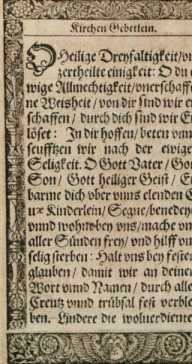 Kirchen Gebettlein.
O Heilige Dreyfaltigkeit/vn
zertheilte einigkeit: O du e
wige Allmechtigkeit/vnerschaff
ne Weisheit/von dir sind wir e
schaffen/durch dich sind wir E
löset: In dir hoffen/beten vnn
seufftzen wir nach der ewige
Seligkeit. O Gott Vater/Go
Son/Gott heiliger Geist/E
barme dich vber vnns elenden
Kinderlein/Segne/benedey
vnnd wohn bey vns/mache vn
aller Sünden frey/vnd hilff vn
selig sterben: Halt vns bey festen
glauben/damit wir an deinem
Wort vnnd Namen/durch alle
Creutz vnnd trübsal fest verble
ben. Lindere die wolverdiente